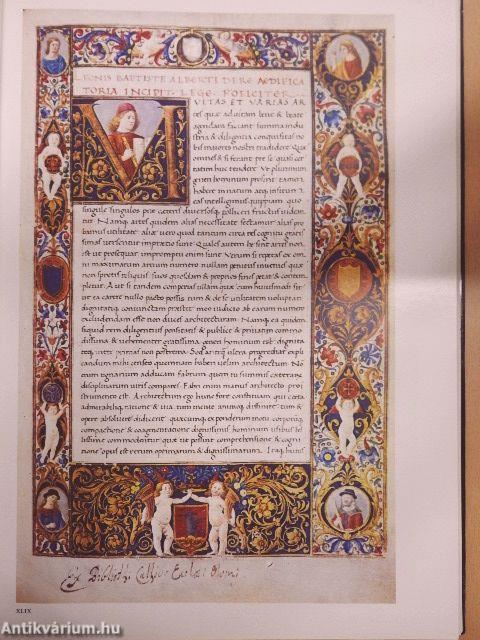 LEONIS BAPTISTE ALBERTI DE RE AEDIFICA
TORIA INCIPIT. LEGE FOELICITER.
MVLTAS ET VARIAS AR
tes quae ad vitam bene & beate
agendam faciant summa indu
stria & diligentia conquisitas no
bis maiores nostri tradidere Quae
omnes & si ferant prae se quasi cer
tatim huc tendere Vt plurimum
generi hominum prosint tamen
habere innatum atque institum
eas intelligimus quippiam quo
singulae singulos prae ceteris diversosque polliceri fructus videan
tur. Namque artes quidem alias necessitate sectamur alias pro
bamus utilitate aliae vero quod tantum circa res cognitu gratis
simas versentur in praetio sunt
omni maximarum artium numero nullam penitus invenies quae
pletur. Aut si tandem comperias ullam quae cum huiusmodi sit
ut ea carere nullo pacto possis tum & de se utilitatem voluptati
dignitatique coniunctam praestet meo iudicio ab earum numero
excludendam esse non duces architecturam. Namque ea quidem
siquid rem diligentius pensitaris & publice & privatim commo
dissima & vehementer gratissima generi hominum est dignita
teque inter primas non postrema. Sed antequam ultra progrediar expli
candum mihi censeo quemnam haberi velim architectum. No
enim tignarium adducam fabrum quem tu summis caeterarum
disciplinarum viris compares. Fabri enim manus architecto pro
instrumento est. Architectum ego hunc fore constituam qui certa
admirabilique ratione & via tum mente animoque diffinire tum &
opere absolvere didicerit quaecumque ex ponderum motu corporumque
compactione & coagmentatione dignissimis hominum usibus bel
lissime commodentur quae ut possit comprehensione & cogni
tione opus est rerum optimarum & dignissimarum. Itaque huius
XLIX
Antikvárium.hu